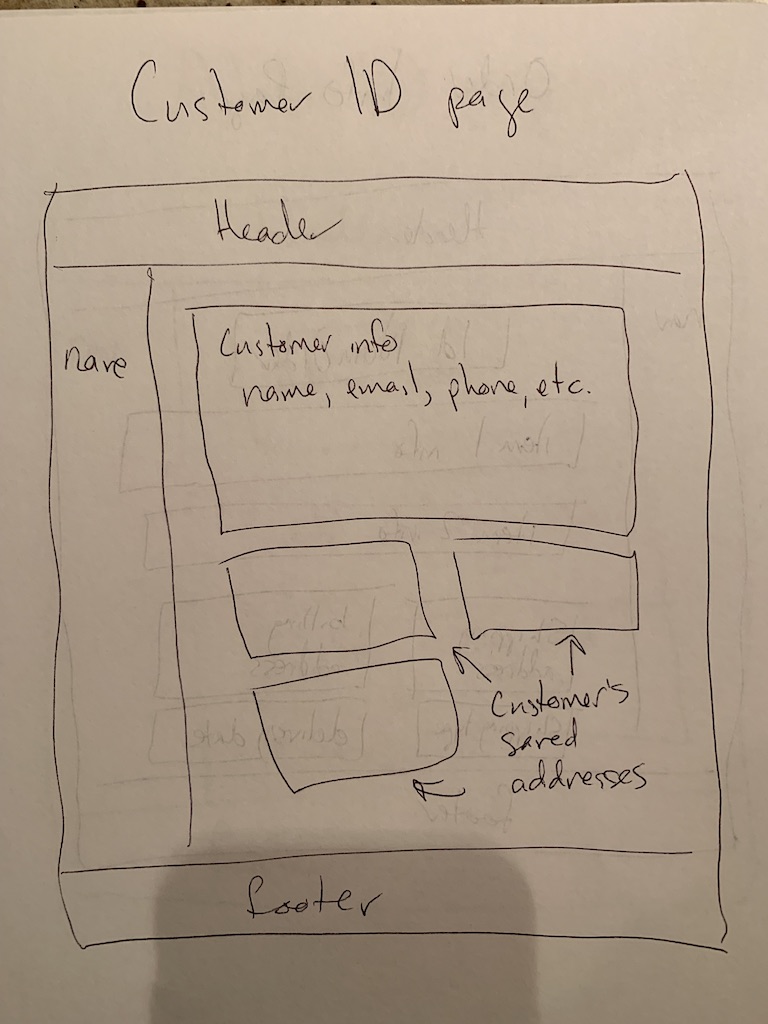 Customer ID page
Header
nave
Customer info
name, email, phone, etc.
Customer's
saved
addresses
footer